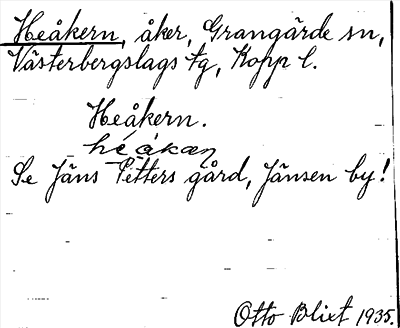 Heåkern, åker, Grangärde sn,
Västerbergslags tg, Kopp l.
Heåkern.
héåkaṇ
Se Jäns Petters gård, Jänsen by!
Otto Blixt 1935.